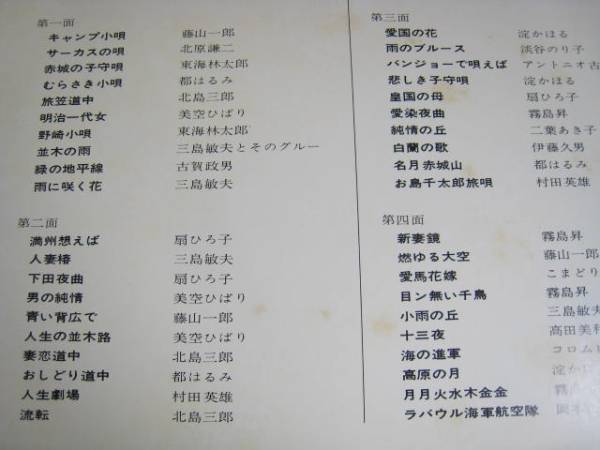 第一面
キャンプ小唄 藤山一郎
サーカスの唄 北原謙二
赤城の子守唄 東海林太郎
むらさき小唄 都はるみ
旅笠道中 北島三郎
明治一代女 美空ひばり
野崎小唄 東海林太郎
並木の雨 三島敏夫とそのグルー
緑の地平線 古賀政男
雨に咲く花 三島敏夫
第二面
満州想えば 扇ひろ子
人妻椿 三島敏夫
下田夜曲 扇ひろ子
男の純情 美空ひばり
青い背広で 藤山一郎
人生の並木路 美空ひばり
妻恋道中 北島三郎
おしどり道中 都はるみ
人生劇場 村田英雄
流転 北島三郎
第三面
愛国の花 淀かほる
雨のブルース 淡谷のり子
バンジョーで唄えば アントニオ古
悲しき子守唄 淀かほる
皇国の母 扇ひろ子
愛染夜曲 霧島昇
純情の丘 二葉あき子
白蘭の歌 伊藤久男
名月赤城山 都はるみ
お島千太郎旅唄 村田英雄
第四面
新妻鏡 霧島昇
燃ゆる大空 藤山一郎
愛馬花嫁 こまどり
目ン無い千鳥 霧島昇
小雨の丘 三島敏夫
十三夜 高田美和
海の進軍 コロム
高原の月 淀かほ
月月火水木金金 霧島
ラバウル海軍航空隊